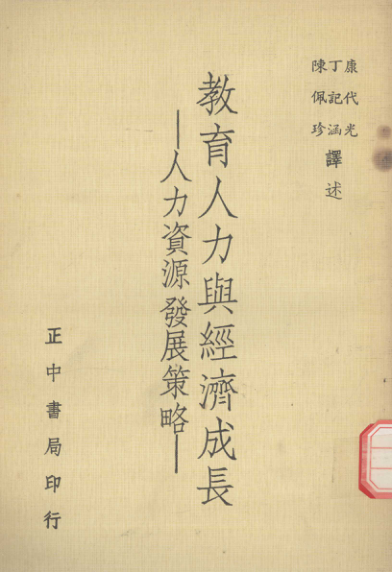 康代光
丁記涵
陳佩珍
譯述
教育人力與經濟成長
—人力資源發展策略—
正中書局印行